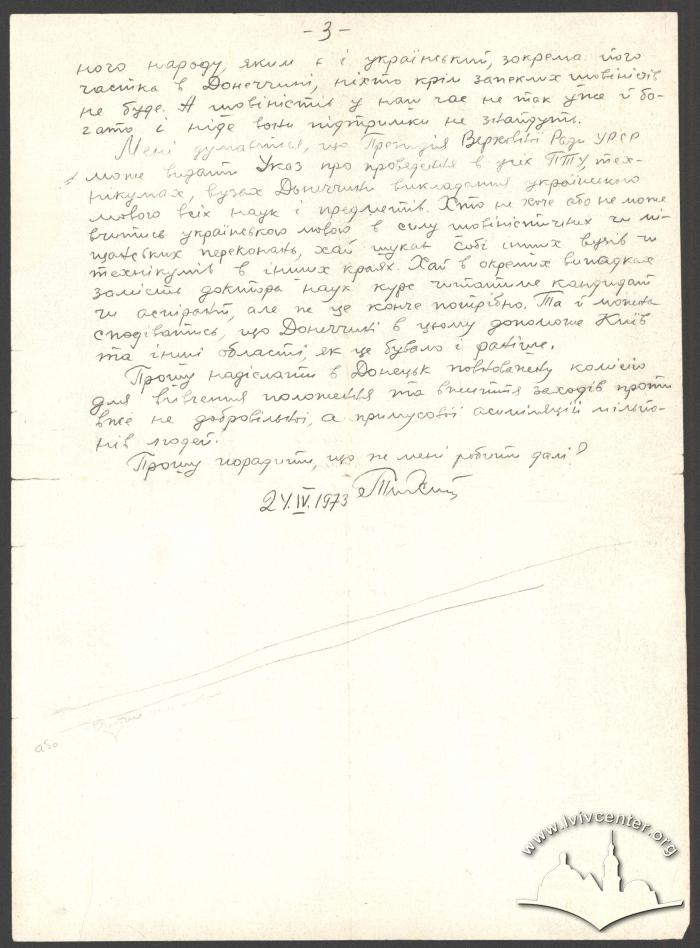 - 3 -
ного народу, яким є і український, зокрема його
частка в Донеччині, ніхто крім запеклих шовіністів
не буде. А шовіністів у наш час не так уже й ба-
гато і ніде вони підтримки не знайдуть.
Мені думається, що Президія Верховної Ради УРСР
може видати Указ про проведення в усіх ПТУ, тех-
нікумах, вузах Донеччини викладання українською
мовою всіх наук і предметів. Хто не хоче або не може
вчитись українською мовою в силу шовіністичних чи мі-
щанських переконань, хай шукає собі інших вузів чи
технікумів в інших краях. Хай в окремих випадках
замість доктора наук курс читатиме кандидат
чи аспірант, але не це конче потрібно. Та й можна
сподіватись, що Донеччині в цьому допоможе Київ
та інші області, як це бувало і раніше.
Прошу надіслати в Донецьк повноважну комісію
для вивчення положення та вжиття заходів проти
вже не добровільної, а примусової асиміляції мільйо-
нів людей.
Прошу порадити, що же мені робити далі?
24.IV.1973
або
www.lvivcenter.org